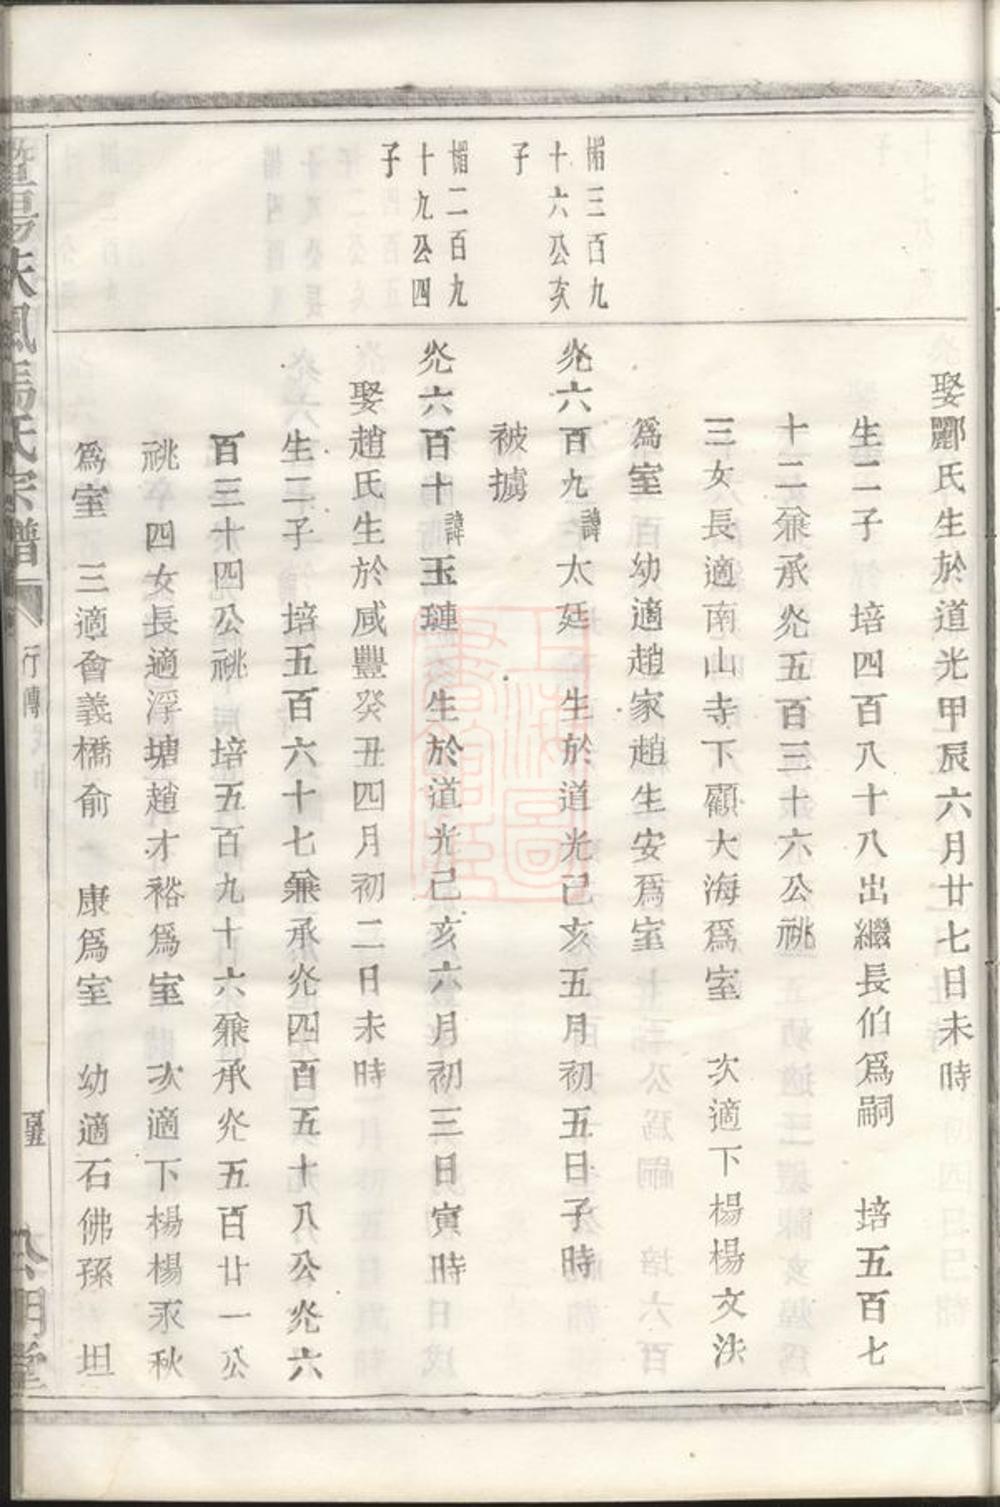 娶酈氏生於道光甲辰六月廿七日未時
生二子 培四百八十八出繼長伯爲嗣 培五百七
十二兼承炛五百三十六公祧
三女長適南山寺下顧大海爲室 次適下楊楊文法
爲室 幼適趙家趙生安爲室
楣三百九
十六公次
子
炛六百九諱太廷 生於道光己亥五月初五日子時
被擄
楣二百九
十九公四
子
炛六百十諱玉璉 生於道光己亥六月初三日寅時
娶趙氏生於咸豐癸丑四月初二日未時
生二子 培五百六十七兼承炛四百五十八公炛六
百三十四公祧 培五百九十六兼承炛五百廿一公
祧 四女長適浮塘趙才裕爲室 次適下楊楊永秋
爲室 三適會義橋俞 康爲室 幼適石佛孫 坦
暨陽扶風馬氏宗譜
行傳
公明堂
上海圖書館藏